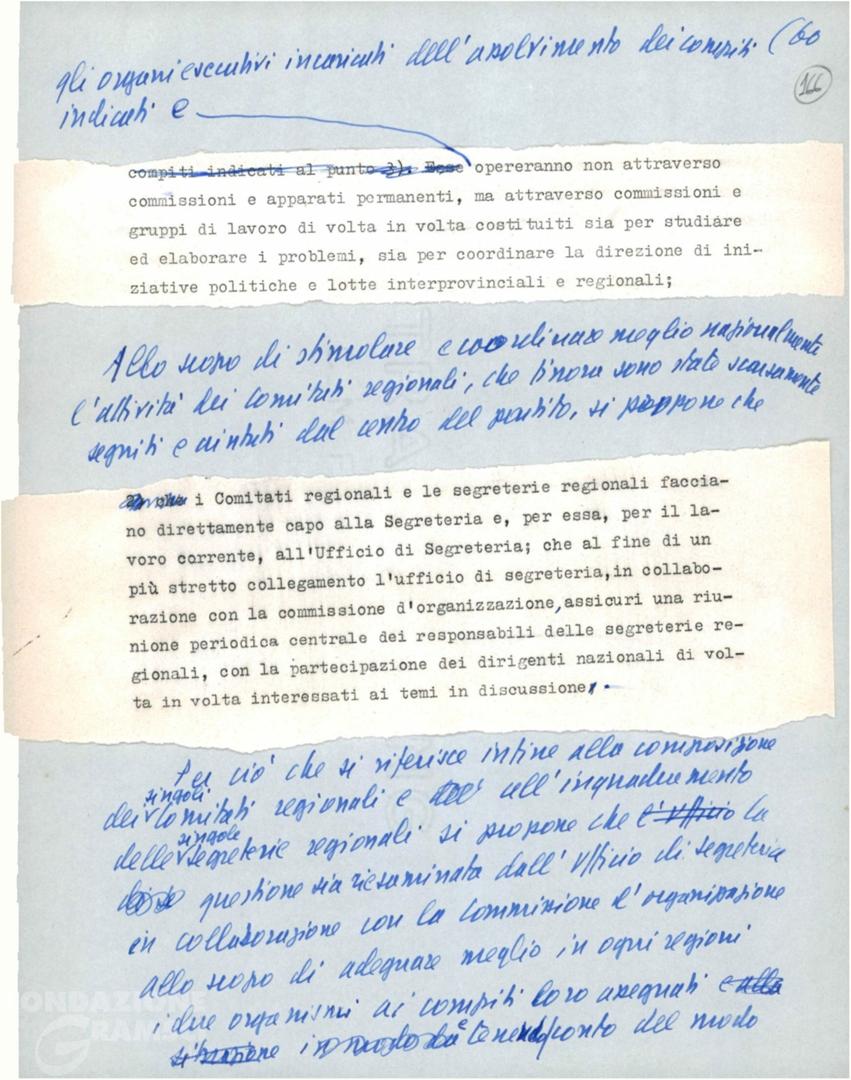 gli organi esecutivi incaricati dell'assolvimento dei compiti (60
166
indicati e
compiti indicati al punto 3). Esse opereranno non attraverso
commissioni e apparati permanenti, ma attraverso commissioni e
gruppi di lavoro di volta in volta costituiti sia per studiare
ed elaborare i problemi, sia per coordinare la direzione di ini-
ziative politiche e lotte interprovinciali e regionali;
Allo scopo di stimolare e coordinare meglio nazionalmente
l'attività dei Comitati regionali, che finora sono state scarsamente
seguiti e aiutati dal centro del partito, si propone che
i Comitati regionali e le segreterie regionali faccia-
no direttamente capo alla Segreteria e, per essa, per il la-
voro corrente, all'Ufficio di Segreteria; che al fine di un
più stretto collegamento l'ufficio di segreteria, in collabo-
razione con la commissione d'organizzazione, assicuri una riu-
nione periodica centrale dei responsabili delle segreterie re-
gionali, con la partecipazione dei dirigenti nazionali di vol-
ta in volta interessati ai temi in discussione.
Per ciò che si riferisce infine alla composizione
singoli
dei Comitati regionali e all'inquadramento
singole
delle segreterie regionali si propone che l'Ufficio la
questione sia riesaminata dall'Ufficio di segreteria
in collaborazione con la Commissione d'organizzazione
allo scopo di adeguare meglio in ogni regioni
i due organismi ai compiti loro assegnati e alla
situazione in modo da tenendo conto del modo
FONDAZIONE
GRAMSCI